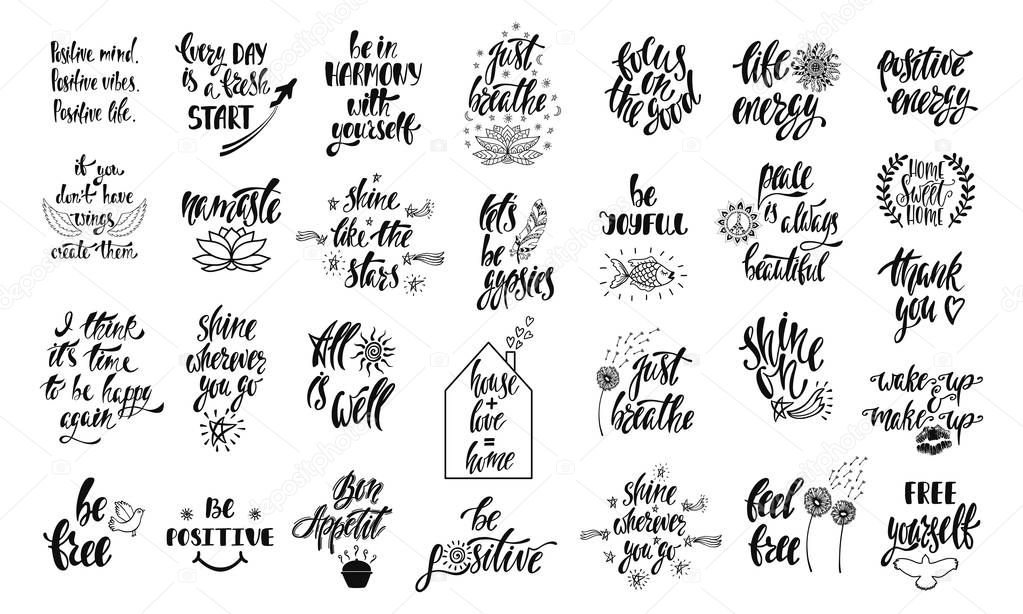 Positive mind.
Positive vibes.
Positive life.
Every DAY
is a fresh
START
be in
HARMONY
with
yourself
just
breathe
focus
on
the good
life
energy
positive
energy
if you
don't have
wings
create them
namaste
shine
like the
stars
let's
be
gypsies
be
JOYFUL
peace
is always
beautiful
HOME
Sweet
HOME
thank
you
I think
it's time
to be happy
again
shine
wherever
you go
All
is well
house
+
love
=
home
just
breathe
shine
on
wake-up
&
make-up
be
free
Be
POSITIVE
Bon
Appetit
be
positive
shine
wherever
you go
feel
free
FREE
yourself
depositphotos